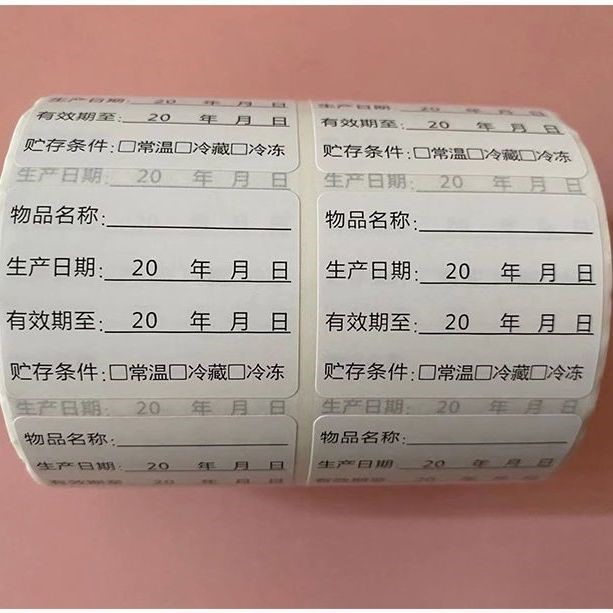 生产日期 20 年 月 日
有效期至: 20 年 月 日
贮存条件:□常温□冷藏□冷冻
生产日期: 20 年 月 日
物品名称:
生产日期: 20 年 月 日
有效期至: 20 年 月 日
贮存条件:□常温□冷藏□冷冻
生产日期: 20 年 月 日
物品名称:
生产日期: 20 年 月 日
有效期至 20 年 月 日
生产日期: 20 年 月 日
有效期至: 20 年 月 日
贮存条件:□常温□冷藏□冷冻
生产日期: 20 年 月 日
物品名称:
生产日期: 20 年 月 日
有效期至: 20 年 月 日
贮存条件:□常温□冷藏□冷冻
生产日期: 20 年 月 日
物品名称:
生产日期: 20 年 月 日
有效期至: 20 年 月 日